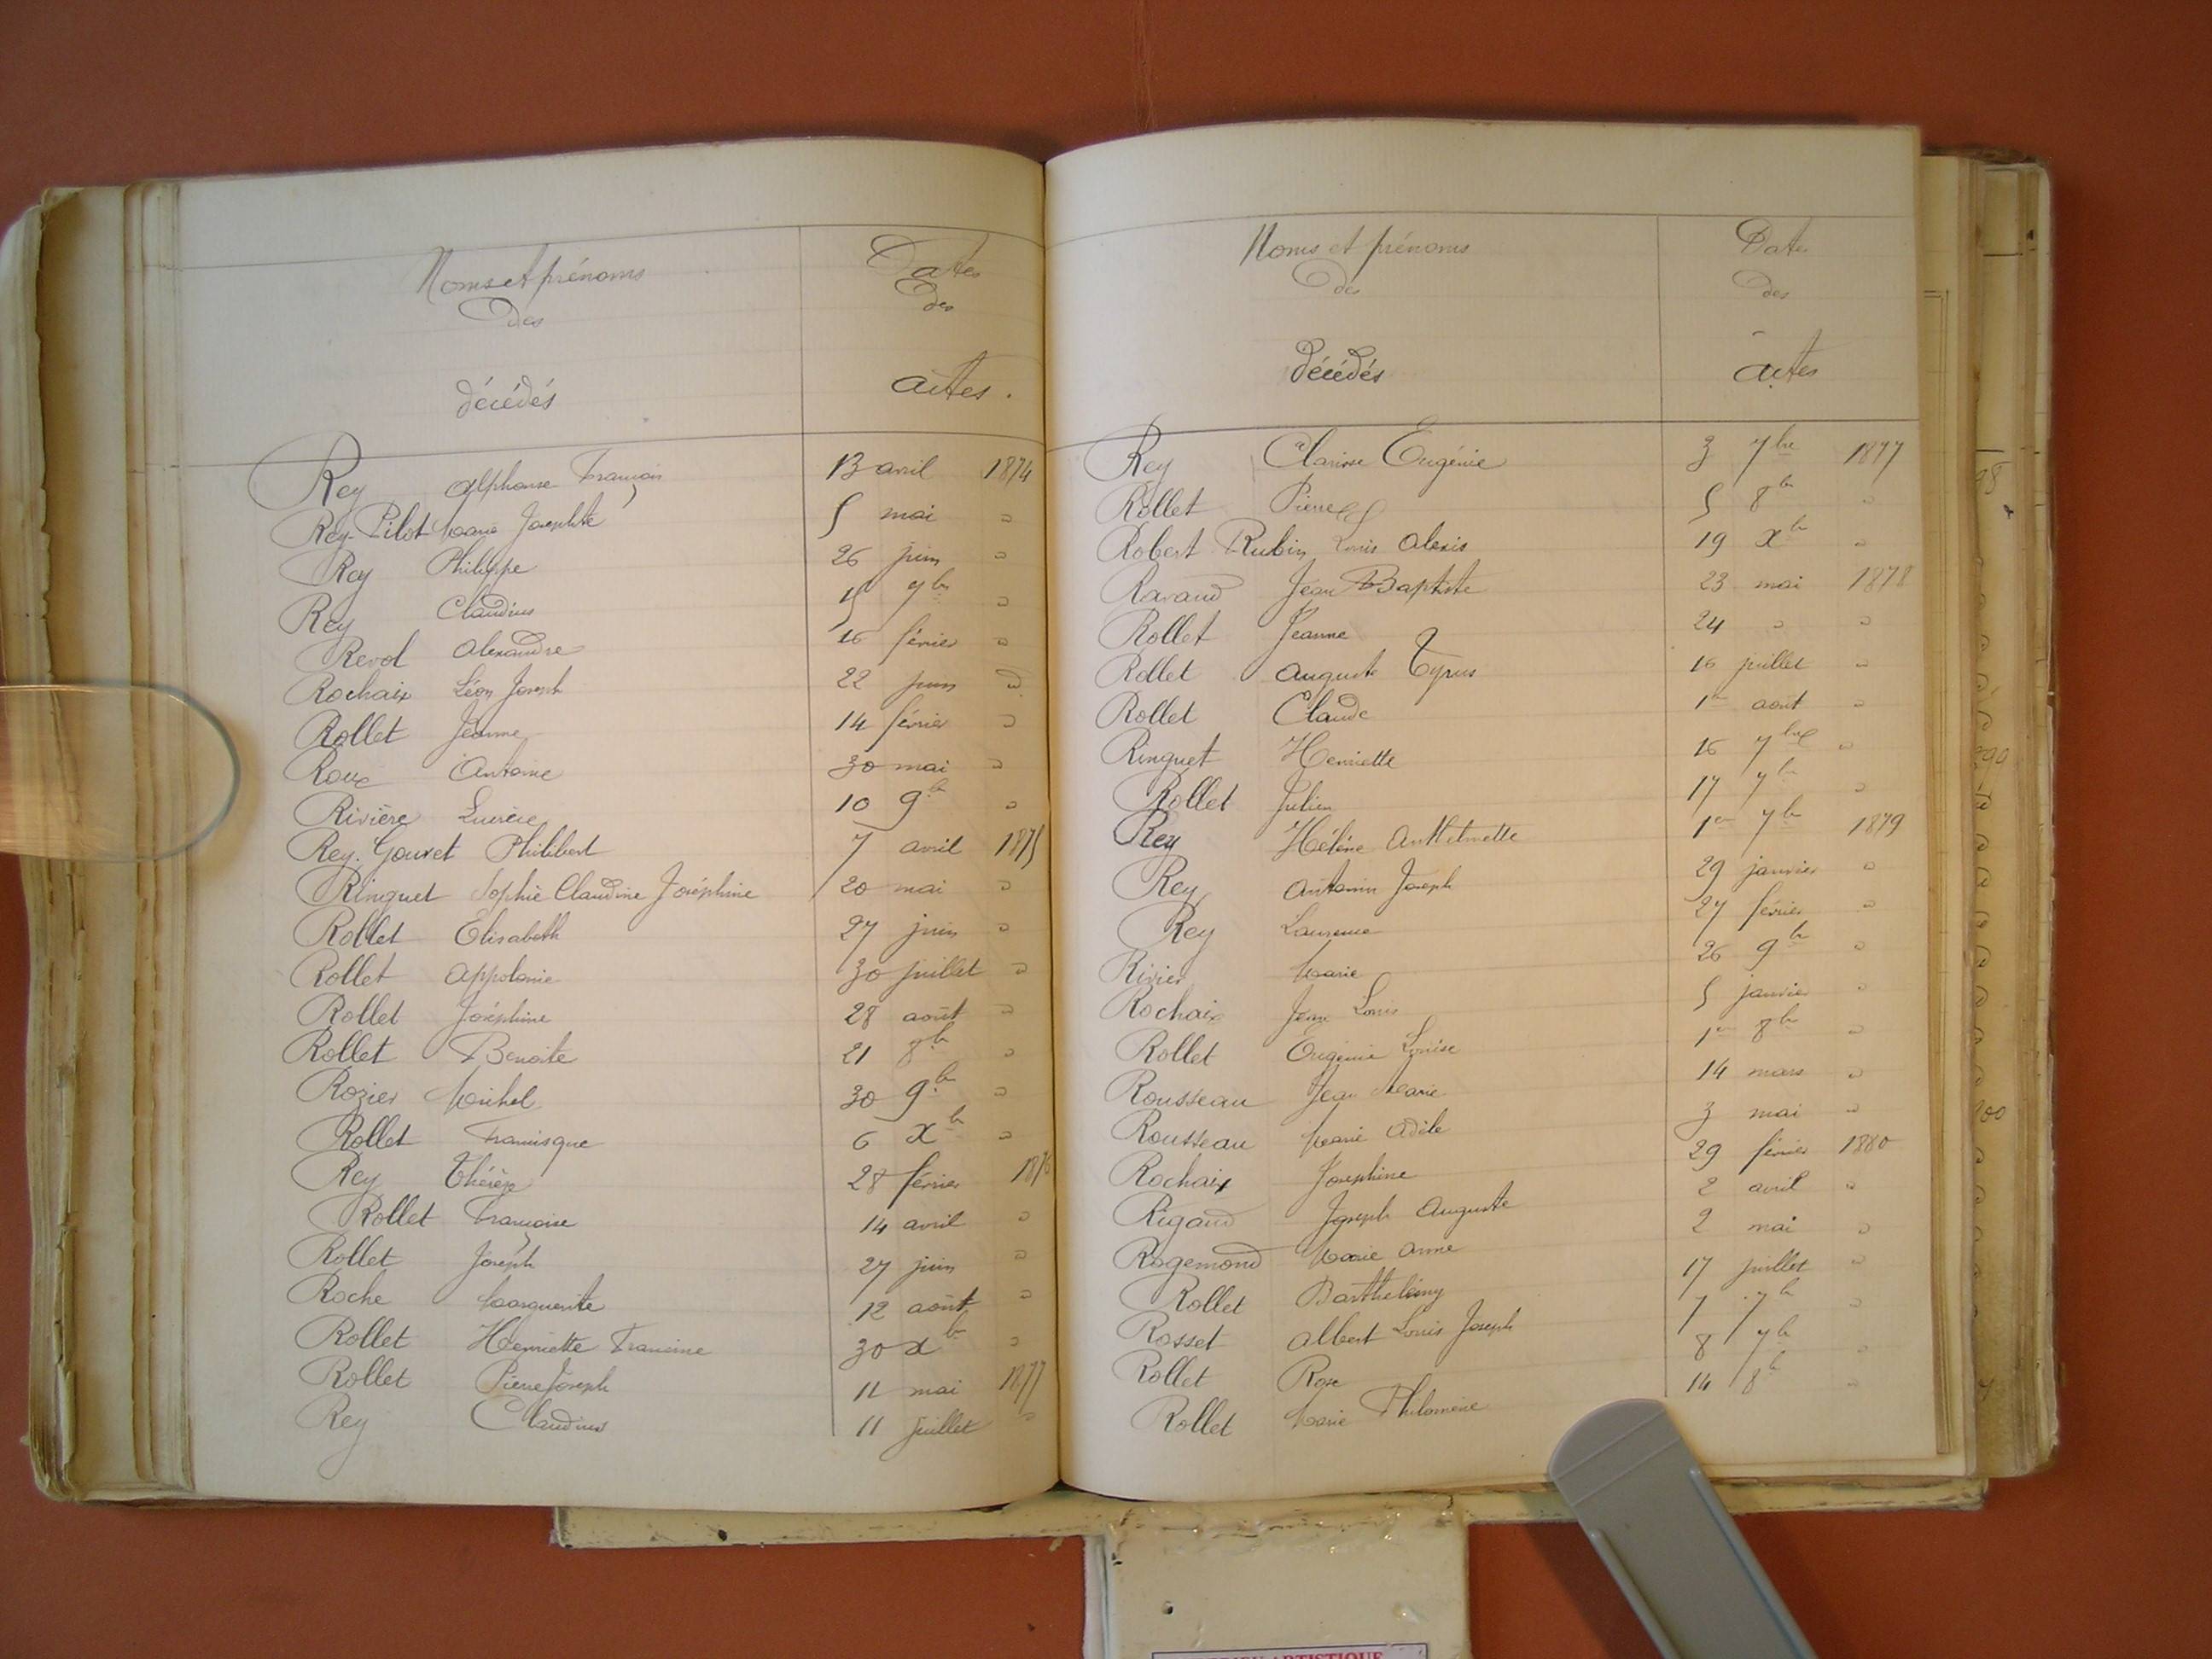 Noms et prénoms
des
décédés
Dates
des
actes.
Rey Alphonse François 13 avril 1874
Rey-Pilot Marie Josephte 5 mai "
Rey Philippe 26 juin "
Rey Claudius 15 7bre "
Revol Alexandre 16 février "
Rochaix Léon Joseph 22 juin "
Rollet Jeanne 14 février "
Roux Antoine 30 mai "
Rivière Lucrèce 10 9b "
Rey-Gouvet Philibert 7 avril 1875
Ringuet Sophie Claudine Joséphine 20 mai "
Rollet Elisabeth 27 juin "
Rollet Appolonie 30 juillet "
Rollet Joséphine 28 août "
Rollet Benoite 21 8b "
Rozier Michel 30 9b "
Rollet Francisque 6 Xb "
Rey Thérèse 28 février 1876
Rollet Françoise 14 avril "
Rollet Joseph 27 juin "
Roche Marguerite 12 août "
Rollet Henriette Francine 30 Xb "
Rollet Pierre Joseph 11 mai 1877
Rey Claudius 11 juillet "
Noms et prénoms
des
décédés
Dates
des
actes
Rey Clarisse Eugénie 3 7bre 1877
Rollet Pierre 5 8b "
Robert Rubin Louis Alexis 19 Xb "
Ravaud Jean Baptiste 23 mai 1878
Rollet Jeanne 24 " "
Rollet Auguste Cyrus 16 juillet "
Rollet Claude 1er août "
Ringuet Henriette 16 7bre "
Rollet Julien 17 7b "
Rey Hélène Anthelmette 1er 7b 1879
Rey Antonin Joseph 29 janvier "
Rey Laurence 27 février "
Rivier Marie 26 9b "
Rochaix Jean Louis 5 janvier "
Rollet Eugénie Louise 1er 8b "
Rousseau Jean Marie 14 mars "
Rousseau Marie Adèle 3 mai "
Rochaix Joséphine 29 février 1880
Rigaud Joseph Auguste 2 avril "
Rogemond Marie Anne 2 mai "
Rollet Barthelémy 17 juillet "
Rosset Albert Louis Joseph 7 7b "
Rollet Rose 8 7b "
Rollet Marie Philomène 14 8b "